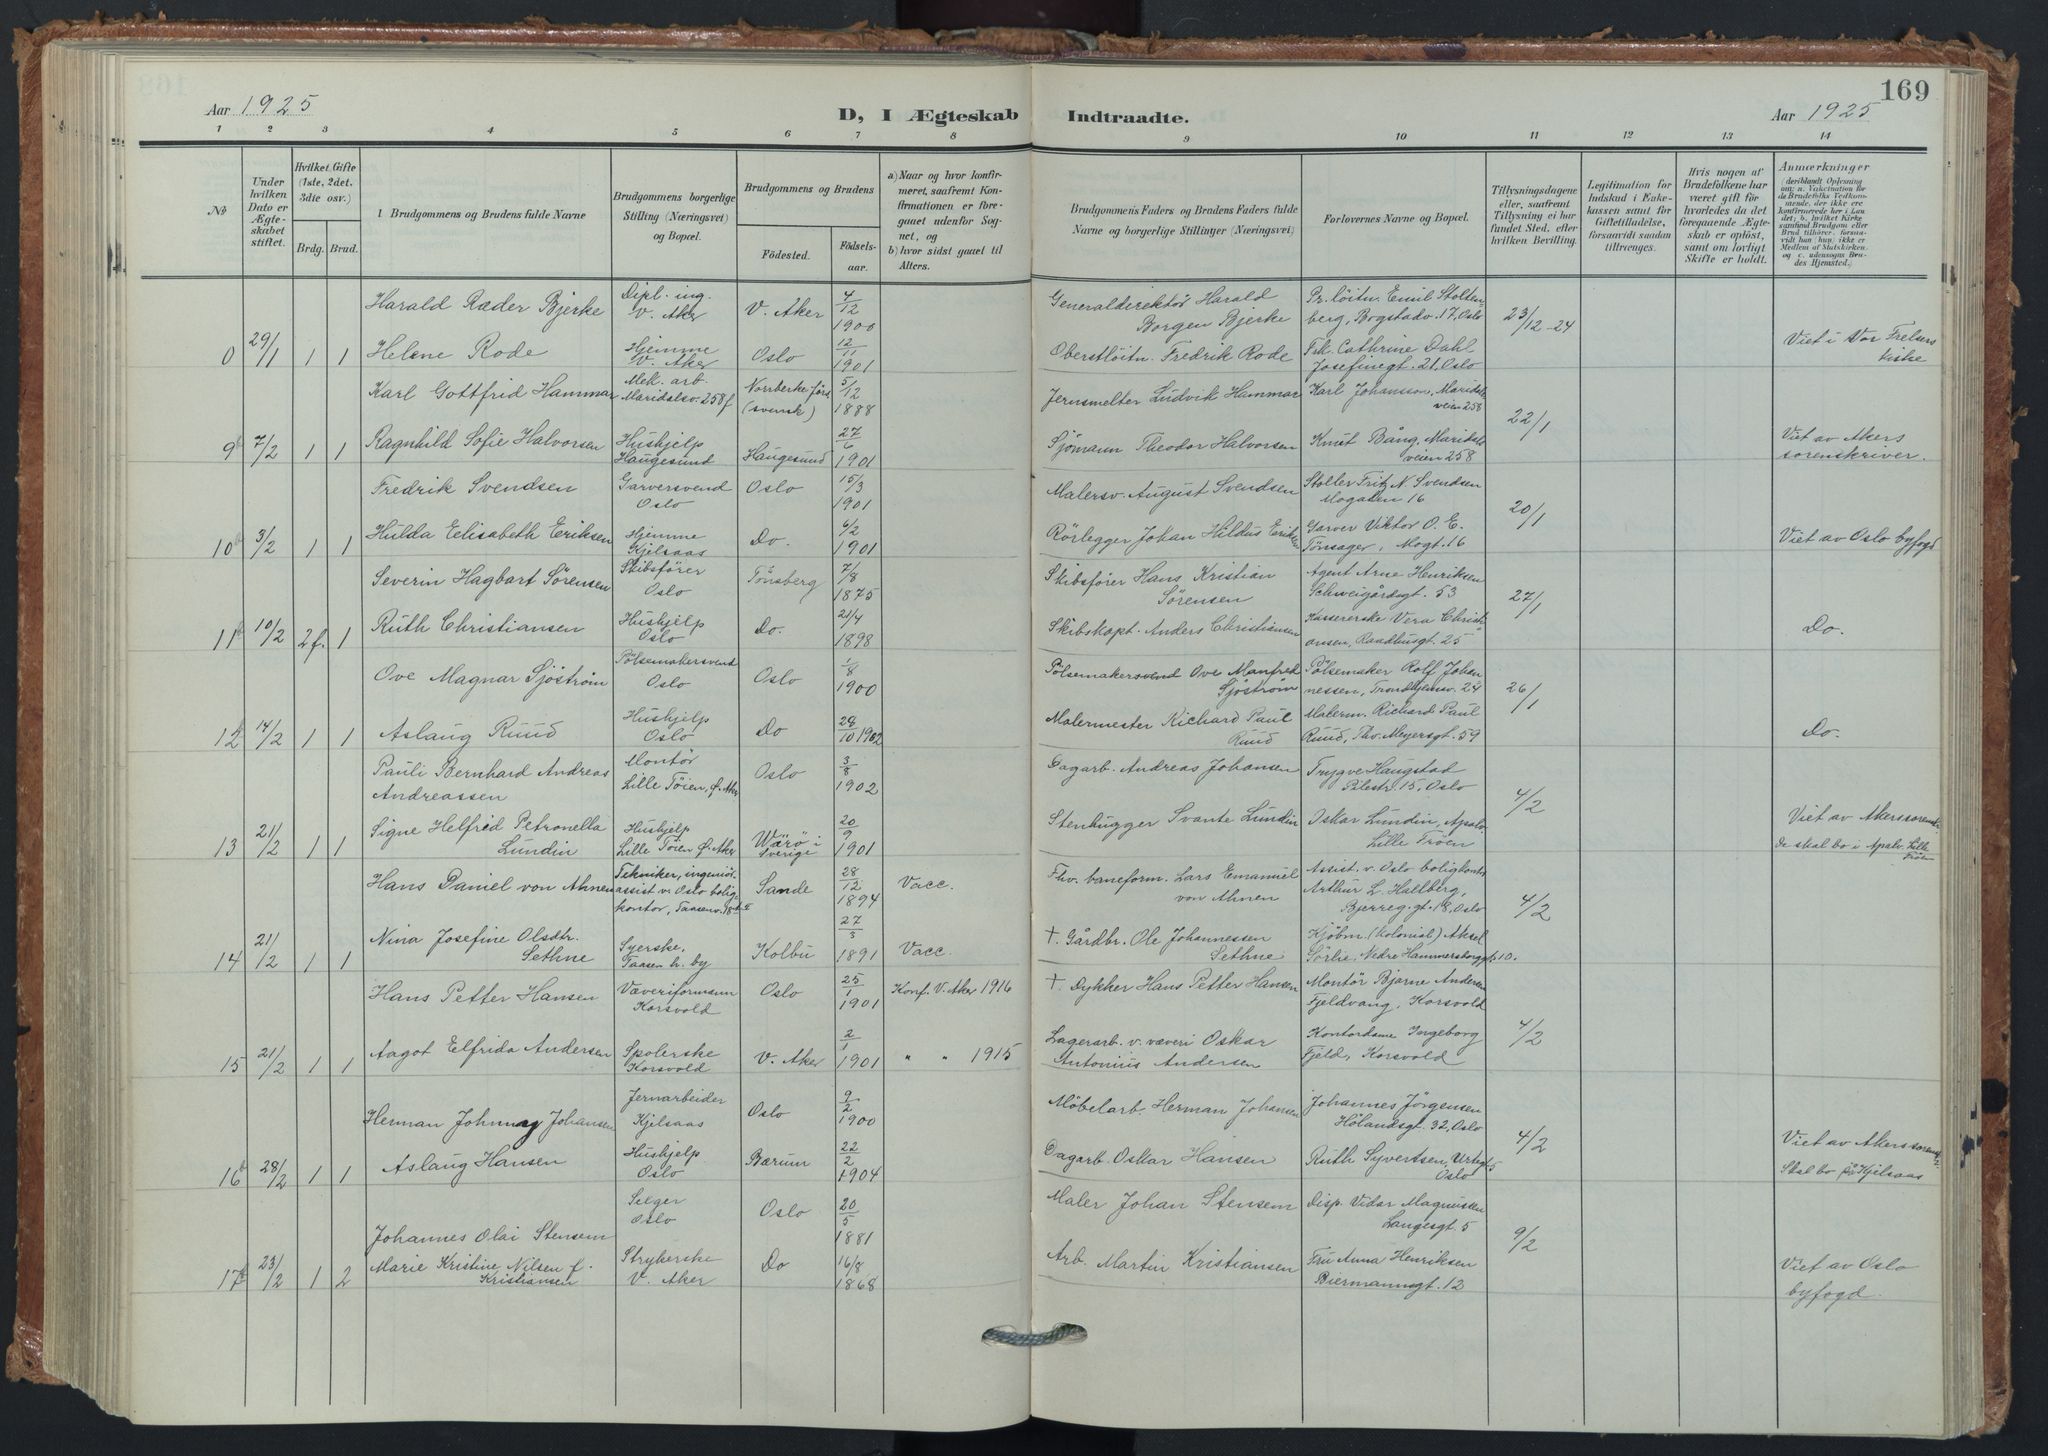 169
Aar 1925
D, I Ægteskab Indtraadte.
Aar 1925
1 2 3 4 5 6 7 8 9 10 11 12 13 14
No
Under hvilken Dato er Ægteskabet stiftet.
Hvilket Gifte (1ste, 2det, 3die osv.)
Brdg. Brud.
Brudgommens og Brudens fulde Navne
Brudgommens borgerlige Stilling (Næringsvei) og Bopæl.
Brudgommens og Brudens
Födested.
Födselsaar.
a) Naar og hvor konfirmeret, saafremt Konfirmationen er foregaaet udenfor Sognet, og
b) hvor sidst gaaet til Alters.
Brudgommens Faders og Brudens Faders fulde Navne og borgerlige Stillinger (Næringsvei)
Forlovernes Navne og Bopæl.
Tillysningsdagene eller, saafremt Tillysning ei har fundet Sted, efter hvilken Bevilling.
Legitimation for Indskud i Enkekassen samt for Giftetilladelse, forsaavidt saadan tiltrænges.
Hvis nogen af Brudefolkene har været gift før hvorledes da det foregaaende Ægteskab er opløst, samt om lovligt Skifte er holdt.
Anmærkninger
Harald Ræder Bjerke Dipl. ing. V. Aker V. Aker 4/12 1900 Generaldirektør Harald Borgen Bjerke Pr. löitn. Emil Stoltenberg, Bogstadv. 17, Oslo 23/12-24
0 29/1 1 1 Helene Rode Hjemme V. Aker Oslo 12/11 1901 Oberstlöitn. Fredrik Rode Frk. Cathrine Dahl Josefinegt. 21, Oslo Viet i Vor Frelsers kirke
Karl Gottfrid Hammar Mek. arb. Maridalsv. 258 f Norrberke förs (svensk) 5/12 1888 Jernsmelter Ludvik Hammar Karl Johansson, Maridalsveien 258 22/1
9b 7/2 1 1 Ragnhild Sofie Halvorsen Hushjelp Haugesund Haugesund 27/6 1901 Sjömann Theodor Halvorsen Knut Bång, Maridalsveien 258 Viet av Akers sorenskriver.
Fredrik Svendsen Garversvend Oslo Oslo 15/3 1901 Malersv. August Svendsen Fritz N. Svendsen Mogaten 16 20/1
10b 3/2 1 1 Hulda Elisabeth Eriksen Hjemme Kjelsaas Do. 6/2 1901 Rörlegger Johan Hildus Eriksen Garver Viktor O. E. Tönsager, Mogt. 16 Viet av Oslo byfogd
Severin Hagbart Sörensen Skibsförer Oslo Tönsberg 7/8 1875 Skibsförer Hans Kristian Sörensen Agent Arne Henriksen Schweigårdsgt. 53 27/1
11b 10/2 2f. 1 Ruth Christiansen Hushjelp Oslo Do. 21/4 1898 Skibskapt. Anders Christiansen Kassererske Vera Christiansen, Raadhusgt. 25 Do.
Ove Magnar Sjöström Pölsemakersvend Oslo Oslo 1/8 1900 Pölsemakersvend Ove Manfred Sjöström Pölsemaker Rolf Johannessen, Trondhjemsv. 24 26/1
12b 14/2 1 1 Aslaug Ruud Hushjelp Oslo Do 28/10 1902 Malermester Richard Paul Ruud Malerm. Richard Paul Ruud, Thv. Meyersgt. 59 Do.
Pauli Bernhard Andreas Andreassen Montör Lille Töien, Ø. Aker Oslo 3/8 1902 Dagarb. Andreas Johansen Trygve Haugstad Pilestr. 15, Oslo 4/2
13 21/2 1 1 Signe Helfrid Petronella Lundin Hushjelp Lille Töien Ø. Aker Wärö i Sverige 20/9 1901 Stenhugger Svante Lundin Oskar Lundin, Apalv. Lille Fröen Viet av Akers sorensk. de skal bo i Apalv. Lille Fröen
Hans Daniel von Ahnen Tekniker, ingeniörassist. v. Oslo boligkontor, Taasenv. 18 Sande 28/12 1894 Vacc. Fhv. baneform. Lars Emanuel von Ahnen Assist. v. Oslo boligkontor Arthur L. Hallberg, Bjerreg.gt. 18, Oslo 4/2
14 21/2 1 1 Nina Josefine Olsdtr. Sethne Syerske, Taasen h. by Kolbu 27/3 1891 Vacc. † Gårdbr. Ole Johannessen Sethne Kjöbm. (kolonial) Aksel Sörlie, Nedre Hammersborggt. 10.
Hans Petter Hansen Væveriformann Korsvold Oslo 25/1 1901 Konf. V. Aker 1916 †. Dykker Hans Petter Hansen Montör Bjarne Andersen Fjeldvang, Korsvold 4/2
15 21/2 1 1 Aagot Elfrida Andersen Spolerske Korsvold V. Aker 2/1 1901 " " 1915 Lagerarb. v. væveri Oskar Antonius Andersen Kontordame Ingeborg Fjeld, Korsvold
Herman Johnny Johansen Jernarbeider Kjelsaas Oslo 9/2 1900 Möbelarb. Herman Johansen Johannes Jörgensen Hölandsgt. 32, Oslo 4/2
16b 28/2 1 1 Aslaug Hansen Hushjelp Oslo Bærum 22/2 1904 Dagarb. Oskar Hansen Ruth Syvertsen, Urtegt. 5 Oslo Viet av Akers sorensk. Skal bo på Kjelsaas
Johannes Olai Stensem Selger Oslo Oslo 20/5 1881 Maler Johan Stensem Disp. Vidar Magnussen Langesgt. 5 9/2
17b 23/2 1 2 Marie Kristine Nilsen f. Kristiansen Strykerske V. Aker Do 16/8 1868 Arb. Martin Kristiansen Fru Anna Henriksen Biermannsgt. 12 Viet av Oslo byfogd.